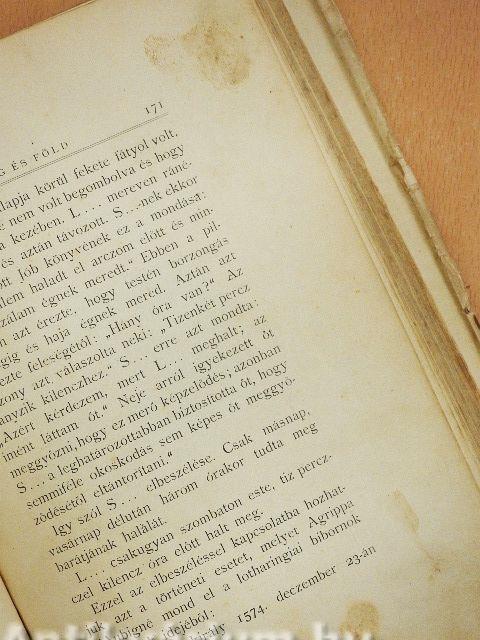 171
G ÉS FÖLD
alapja körül fekete fátyol volt,
nem volt begombolva és hogy
a kezében. L.... mereven ráné-
és aztán távozott. S...-nek ekkor
ott Job könyvének ez a mondása:
lem haladt el arczom előtt és min-
szálam égnek meredt." Ebben a pil-
n azt érezte, hogy testén borzongás
gig és haja égnek mered. Aztán azt
ezte feleségétől: „Hány óra van?" Az
zony azt válaszolta neki: „Tizenkét percz
anyzik kilenczhez." S... erre azt mondta:
„Azért kérdezem, mert L.... meghalt; az
imént láttam őt." Neje arról igyekezett őt
meggyőzni, hogy ez merő képzelődés; azonban
S... a leghatározottabban biztosította őt, hogy
semmiféle okoskodás sem képes őt meggyő-
ződésétől eltántorítani."
Igy szól S... elbeszélése. Csak másnap,
vasárnap délután három órakor tudta meg
barátjának halálát.
L.... csakugyan szombaton este, tiz percz-
czel kilencz óra előtt halt meg.
Ezzel az elbeszéléssel kapcsolatba hozhat-
juk azt a történeti esetet, melyet Agrippa
ubigné mond el a lotharingiai bibornok
idejéből:
király 1574. deczember 23-án
Antikvarium.hu